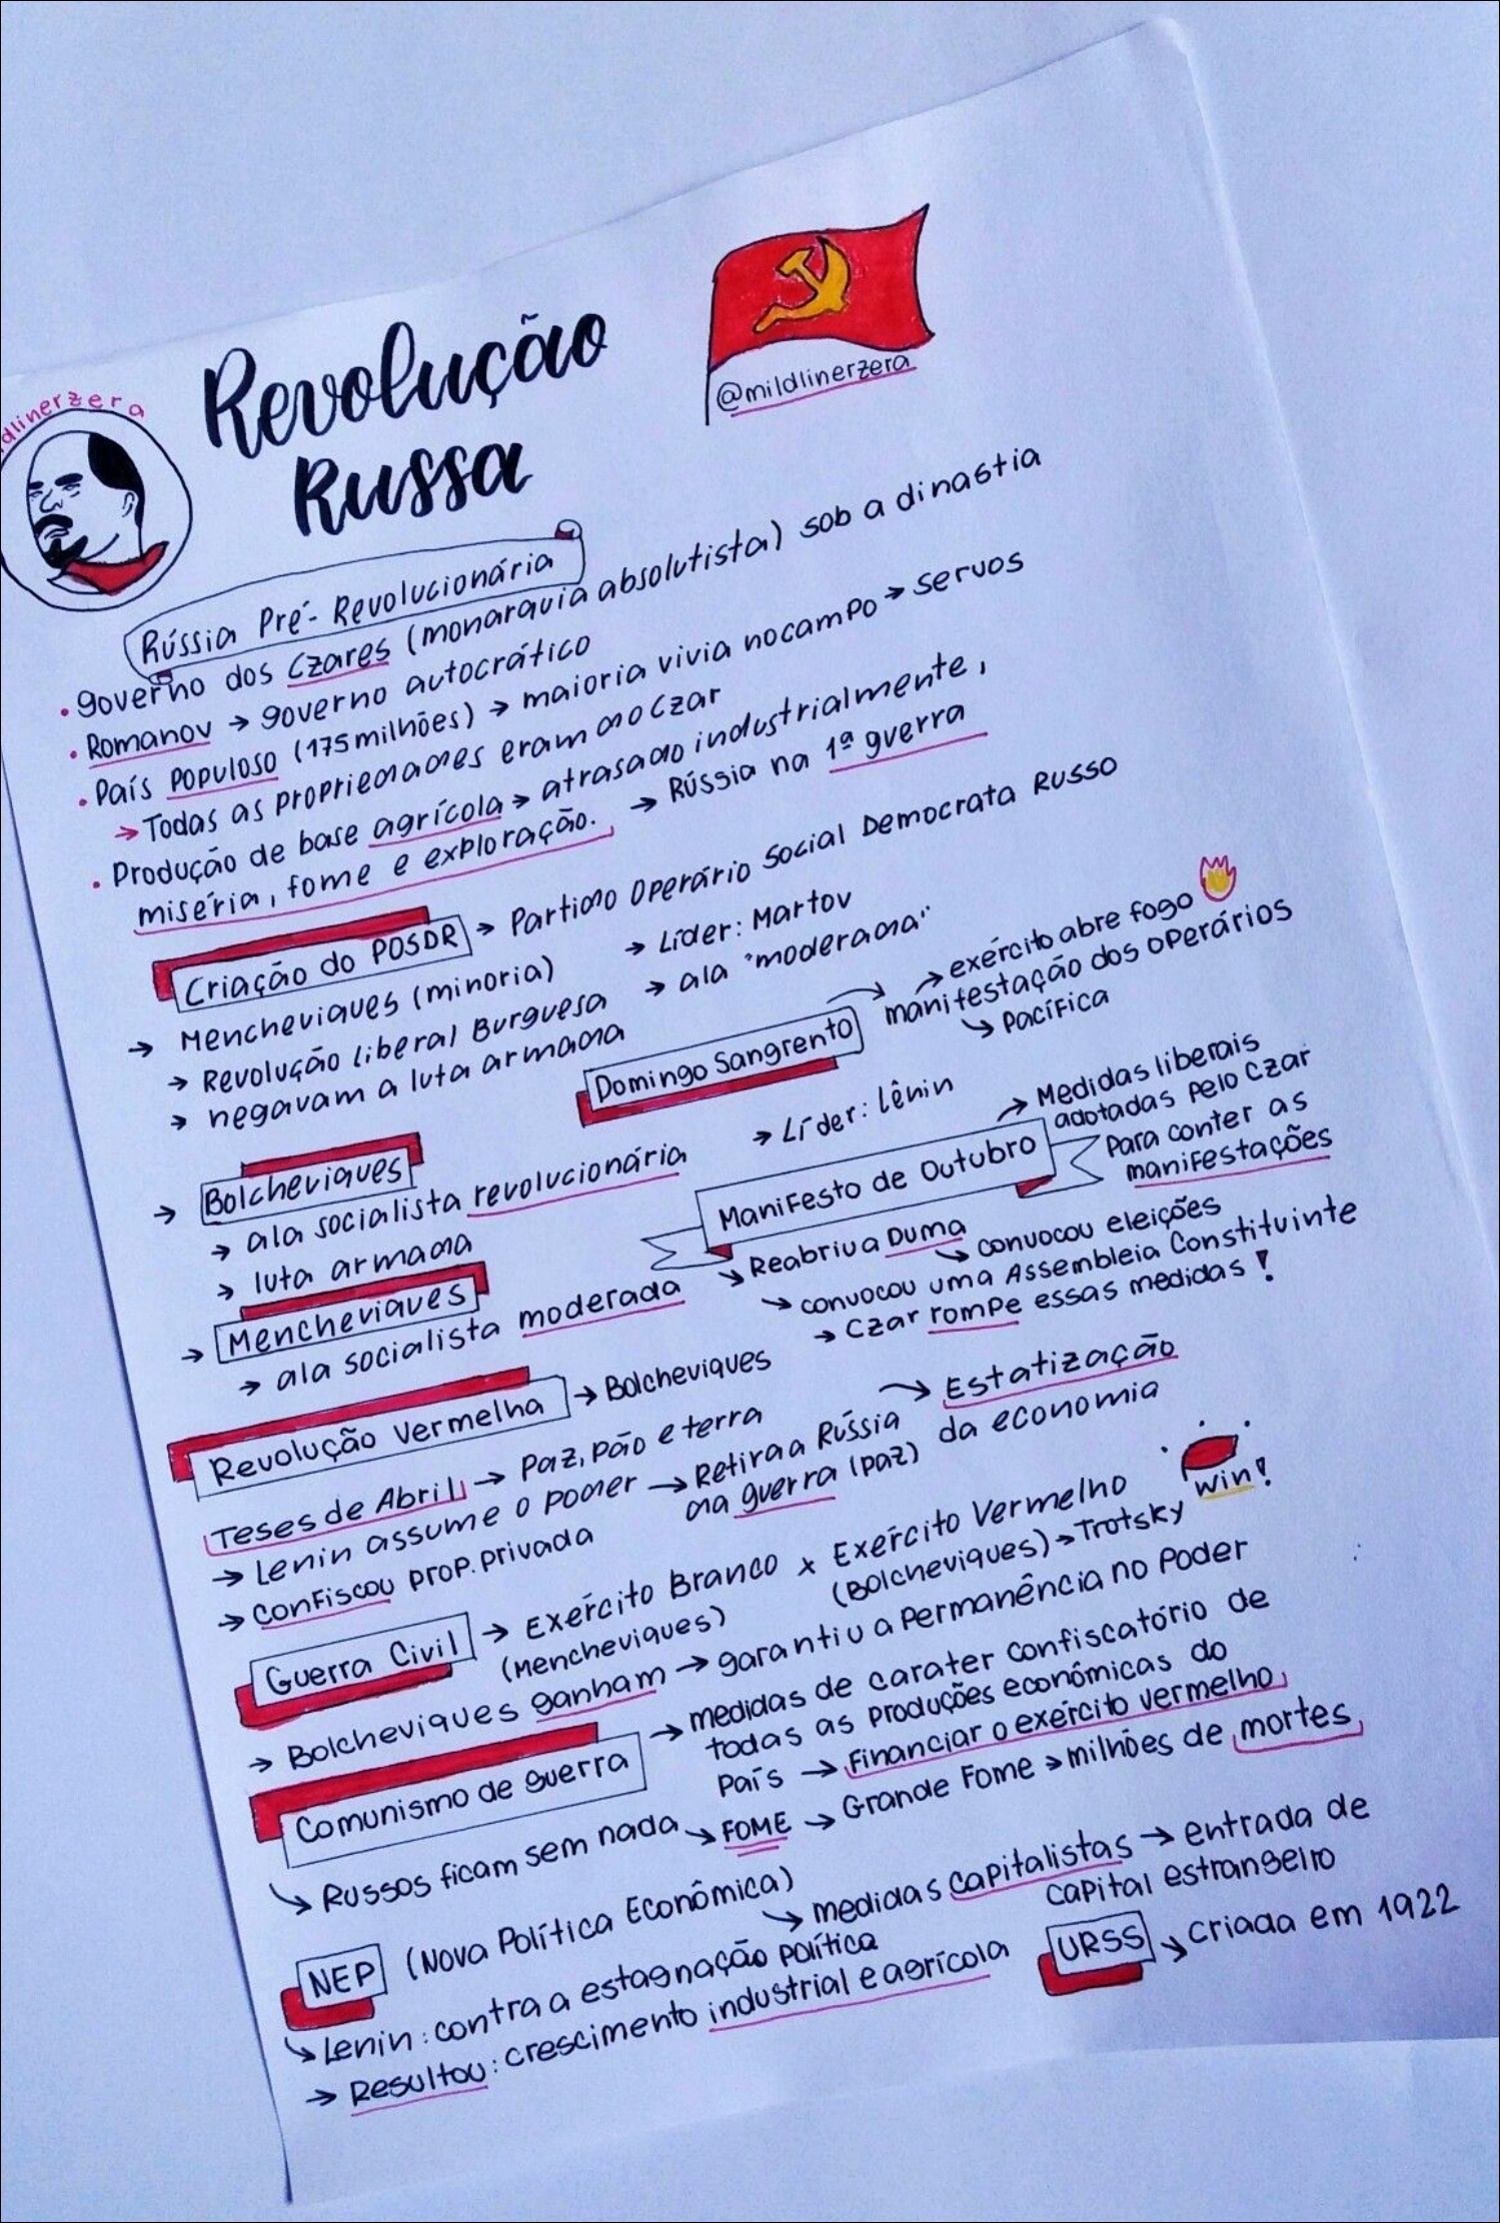 Revolução
Russa
@mildlinerzera
dlinerzera
Rússia Pré-Revolucionária
• governo dos Czares (monarquia absolutista) sob a dinastia
• Romanov → governo autocrático
• País populoso (175 milhões) → maioria vivia no campo → servos
→ Todas as propriedades eram do Czar
• Produção de base agrícola → atrasado industrialmente,
miséria, fome e exploração. → Rússia na 1ª guerra
Criação do POSDR → Partido Operário Social Democrata Russo
→ Mencheviques (minoria) → Líder: Martov
→ Revolução Liberal Burguesa → ala "moderada"
→ negavam a luta armada
Domingo Sangrento → manifestação dos operários
→ exército abre fogo
↳ Pacífica
→ Bolcheviques → Líder: Lênin
→ ala socialista revolucionária
→ luta armada
→ Mencheviques
→ ala socialista moderada
Manifesto de Outubro → Medidas liberais
adotadas pelo Czar
Para conter as
manifestações
↳ Reabriu a Duma
↳ convocou eleições
↳ convocou uma Assembleia Constituinte
→ Czar rompe essas medidas!
Revolução Vermelha → Bolcheviques
Teses de Abril → Paz, pão e terra
→ Lenin assume o poder → Retira a Rússia
da guerra (paz)
→ Estatização
da economia
→ Confiscou prop. privada
Guerra Civil → Exército Branco x Exército Vermelho
(Mencheviques) (Bolcheviques) → Trotsky
win!
→ Bolcheviques ganham → garantiu a Permanência no Poder
Comunismo de guerra → medidas de carater confiscatório de
todas as produções econômicas do
País → Financiar o exército vermelho
↳ Russos ficam sem nada → FOME → Grande Fome → milhões de mortes
NEP (Nova Política Econômica)
↳ medidas capitalistas → entrada de
capital estrangeiro
↳ Lenin: contra a estagnação política
→ Resultou: crescimento industrial e agrícola
URSS ↳ criada em 1922